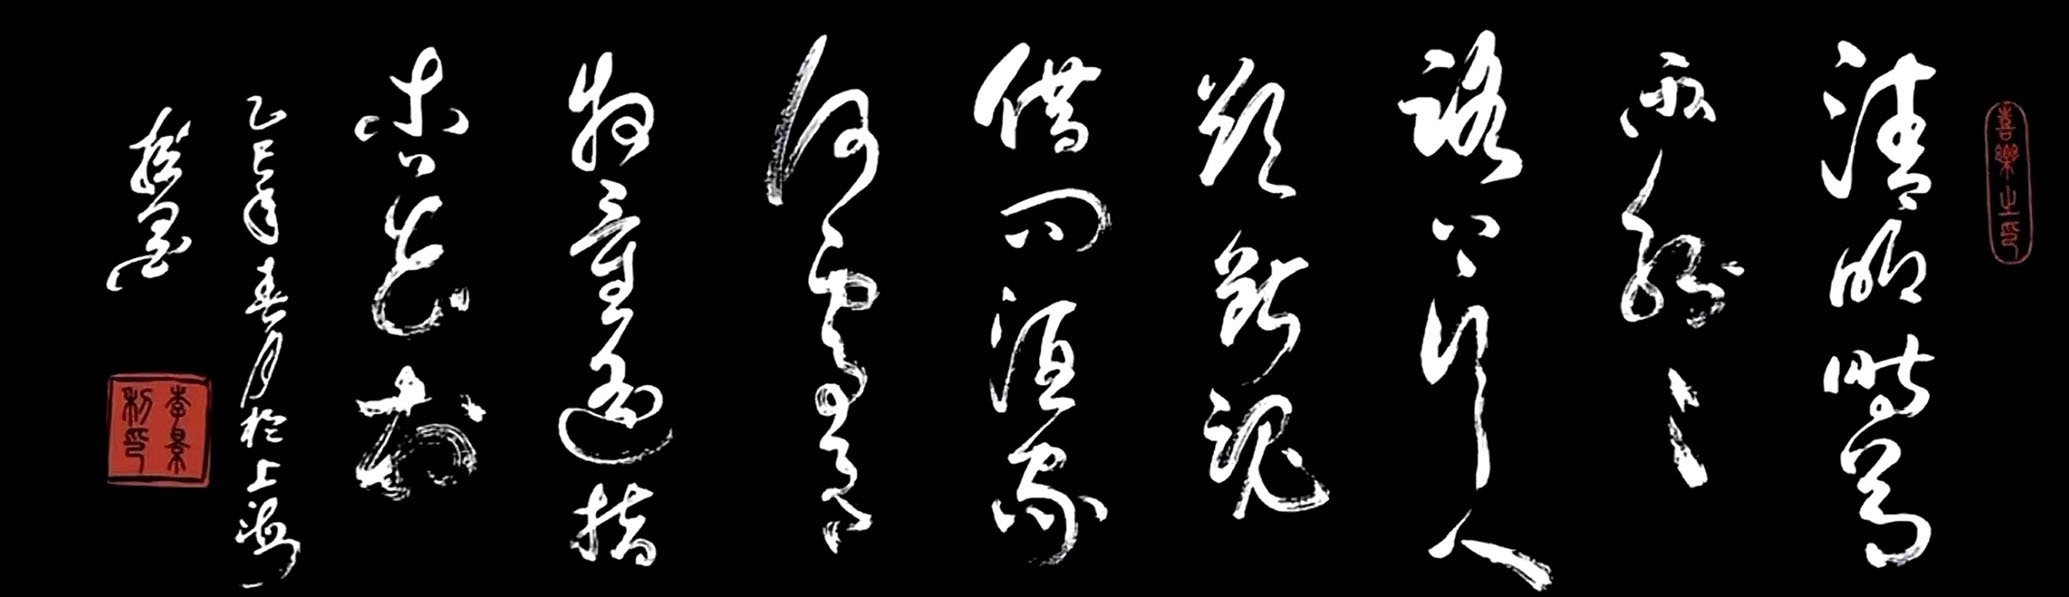 喜樂之印
清明時節
雨紛紛
路上行人
欲斷魂
借问酒家
何處有
牧童遥指
杏花村
乙巳年春月於上海